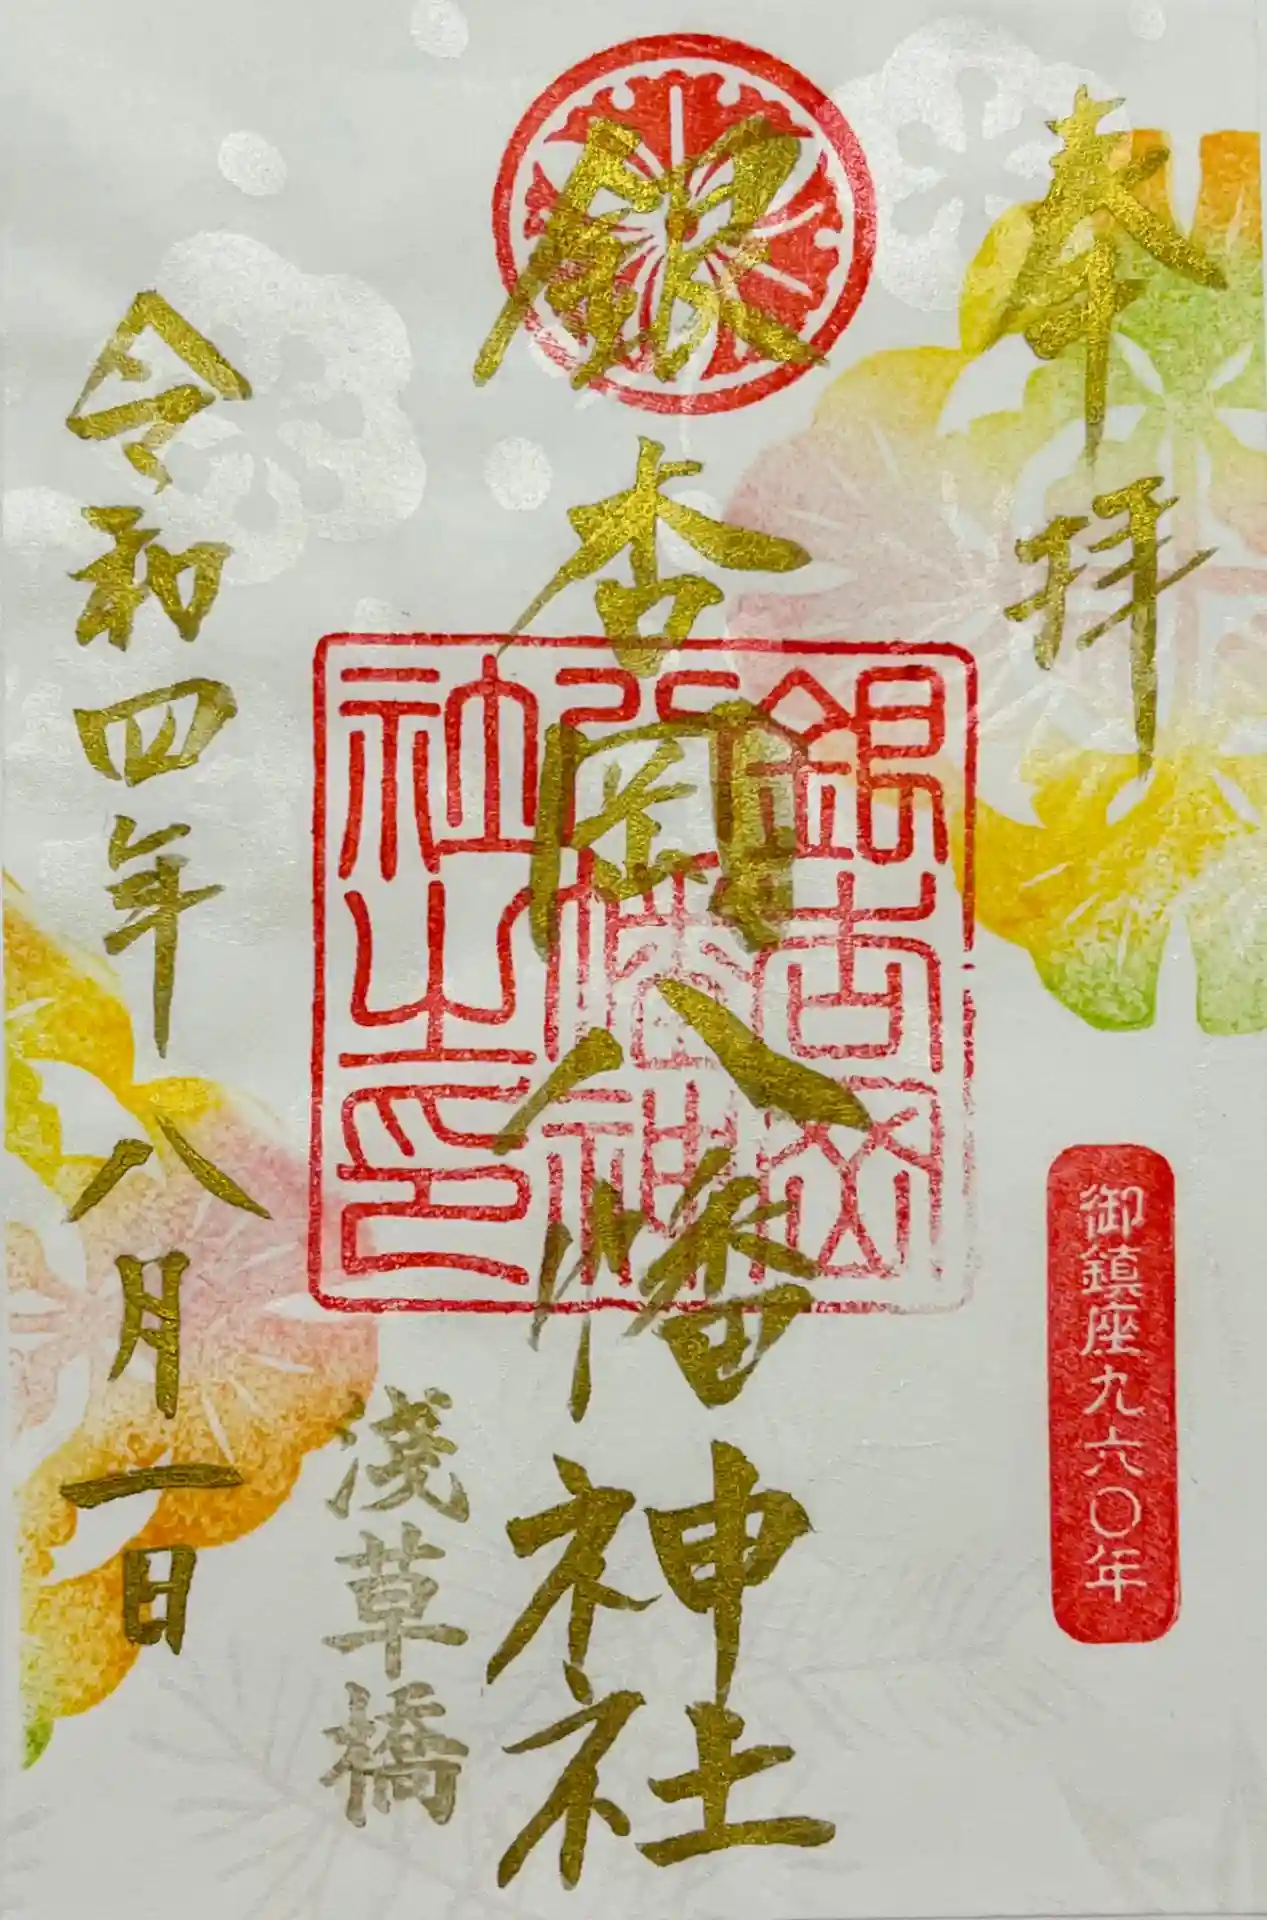 奉拝
御鎮座九六〇年
銀杏岡八幡神社
銀杏岡
八幡神
社之印
浅草橋
令和四年八月一日